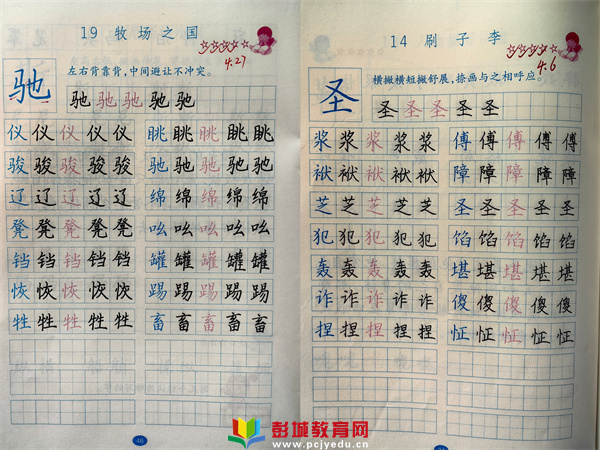 19 牧场之国
4.27
左右背靠背,中间避让不冲突。
驰 驰 驰 驰 驰 驰
仪 仪 仪 仪 仪 眺 眺 眺 眺 眺
骏 骏 骏 骏 骏 驰 驰 驰 驰 驰
辽 辽 辽 辽 辽 绵 绵 绵 绵 绵
凳 凳 凳 凳 凳 吆 吆 吆 吆 吆
铛 铛 铛 铛 铛 罐 罐 罐 罐 罐
恢 恢 恢 恢 恢 踢 踢 踢 踢 踢
牲 牲 牲 牲 牲 畜 畜 畜 畜 畜
46
14 刷子李
4.6
横撇横短撇舒展,捺画与之相呼应。
圣 圣 圣 圣 圣 圣
浆 浆 浆 浆 浆 傅 傅 傅 傅 傅
袱 袱 袱 袱 袱 障 障 障 障 障
芝 芝 芝 芝 芝 圣 圣 圣 圣 圣
犯 犯 犯 犯 犯 馅 馅 馅 馅 馅
轰 轰 轰 轰 轰 堪 堪 堪 堪 堪
诈 诈 诈 诈 诈 傻 傻 傻 傻 傻
捏 捏 捏 捏 捏 怔 怔 怔 怔 怔
彭城教育网
www.pcjyedu.cn